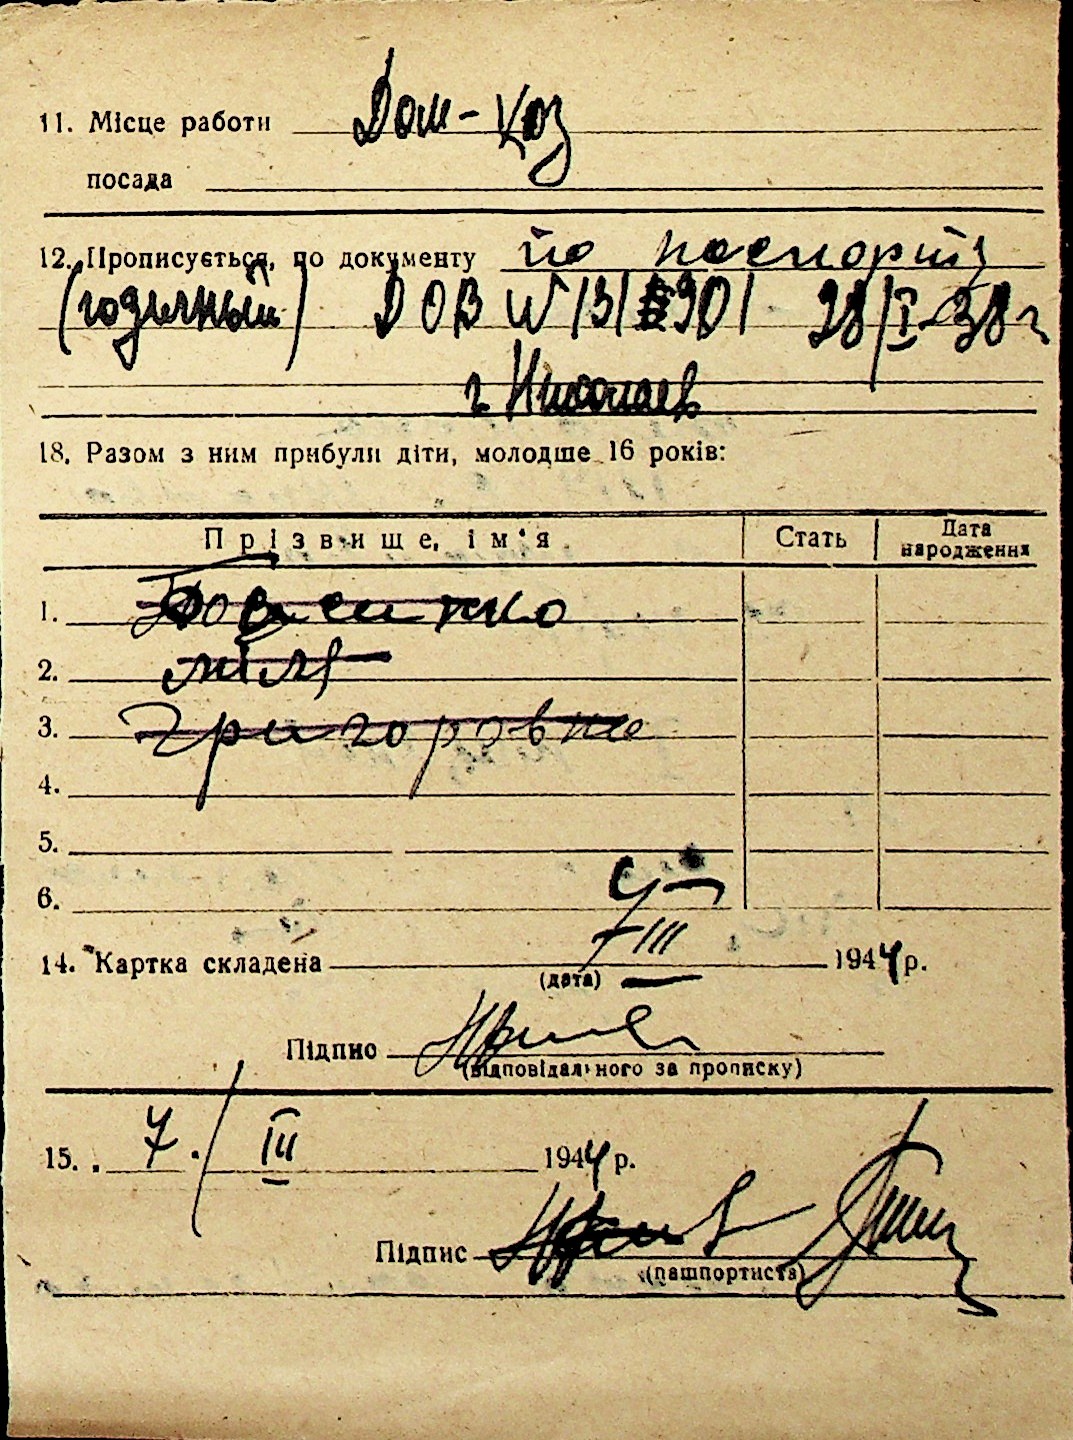 11. Місце работи Дом-хоз
посада
12. Прописується, по документу по паспорту
(годичный) ДОВ N 131 901 28/I-38 г
г. Николаев
18. Разом з ним прибули діти, молодше 16 років:
Прізвище, ім'я Стать Дата народження
1. Довженко
2.
3. Григоровна
4.
5.
6.
14. Картка складена 7/III 1944 р.
(дата)
Підпис
(відповідального за прописку)
15. 7. / III 1944 р.
Підпис
(пашпортиста)